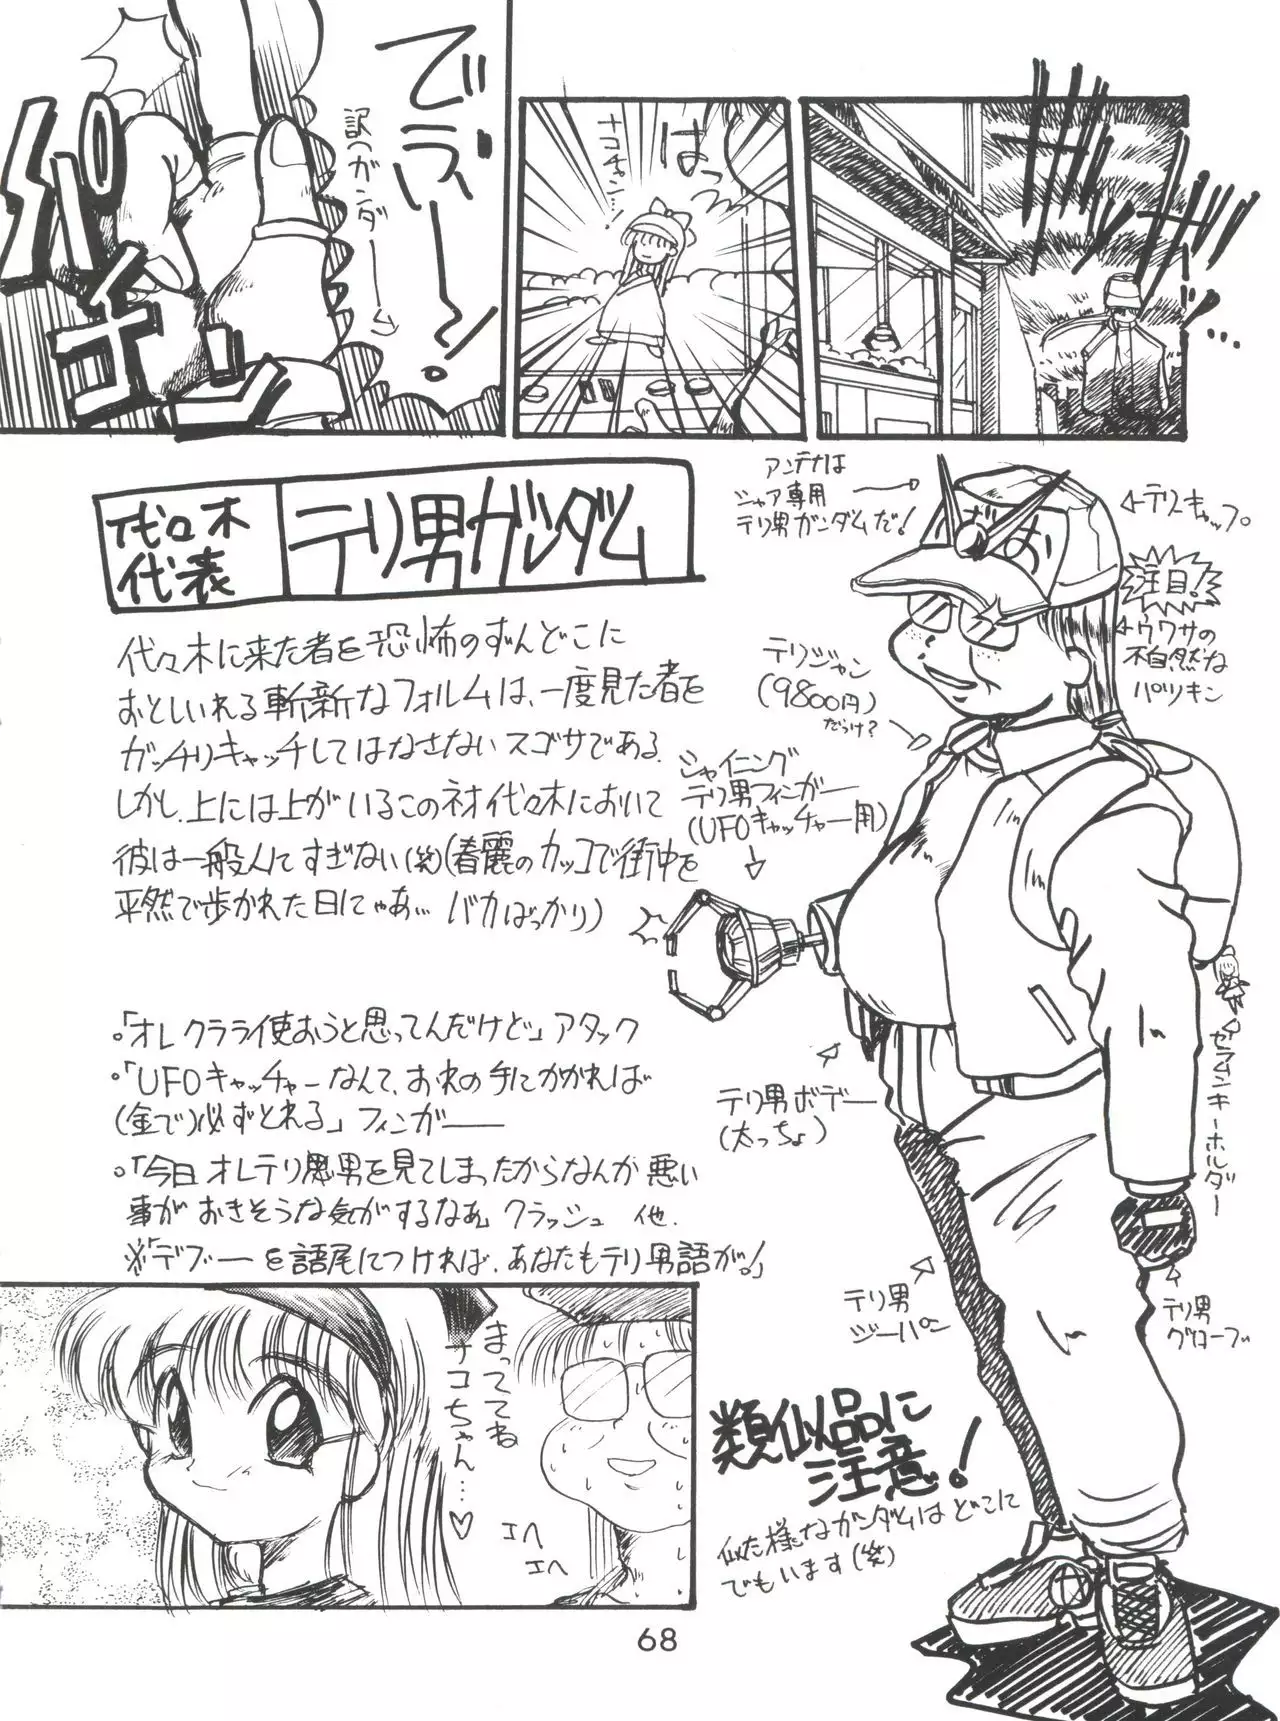 ザザザザッ…
はっ
ナコチャン…!
でぶー!
訳(ガンダーム)
パチン
代々木
代表
テリ男ガンダム
代々木に来た者を恐怖のずんどこに
おとしいれる斬新なフォルムは、一度見た者を
ガッチリキャッチしてはなさないスゴサである.
しかし、上には上がいるこのネオ代々木において
彼は一般人てすぎない(笑)(春麗のカッコで街中を
平然で歩かれた日にゃあ… バカばっかり)
。「オレクラライ使おうと思ってんだけど」アタック
。「UFOキャッチャーなんて、おれの手にかかれば
(金で)必ずとれる」フィンガー
。「今日オレテリ男を見てしまったからなんか悪い
事がおきそうな気がするなあ」クラッシュ 他.
※「デブー」を語尾につければ、あなたもテリ男語が。」
アンテナは
シャア専用
テリ男ガンダムだ!
テリキャップ
注目!
ウワサの
不自然な
パツキン
テリジャン
(9800円)
だっけ?
シャイニング
テリ男フィンガー
(UFOキャッチャー用)
テリ男ボデー
(太っちょ)
セラムンキーホルダー
テリ男
ジーパン
テリ男
グローブ
類似品に
注意!
似た様なガンダムはどこに
でもいます(笑)
まっててね
ナコちゃん…♡
エヘ
エヘ
68